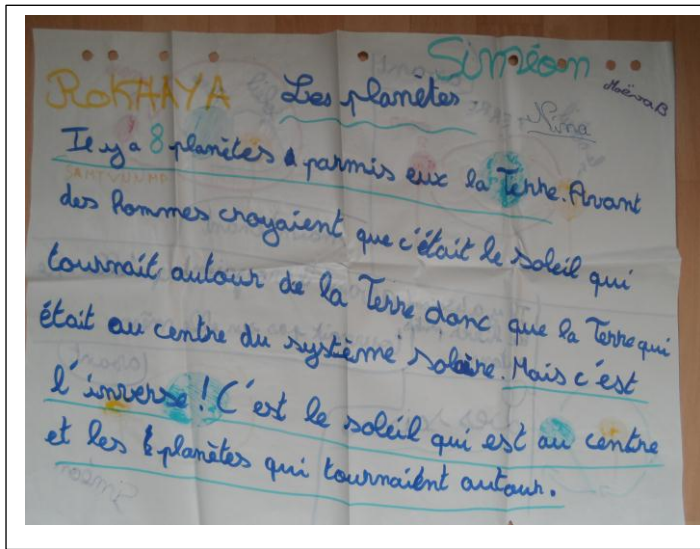 Siméon
ROKHAYA Les planètes Nina Maëssa B
Il y a 8 planètes parmis eux la Terre. Avant
des hommes croyaient que c'était le soleil qui
tournait autour de la Terre donc que la Terre qui
était au centre du système solaire. Mais c'est
l'inverse! C'est le soleil qui est au centre
et les planètes qui tournaient autour.